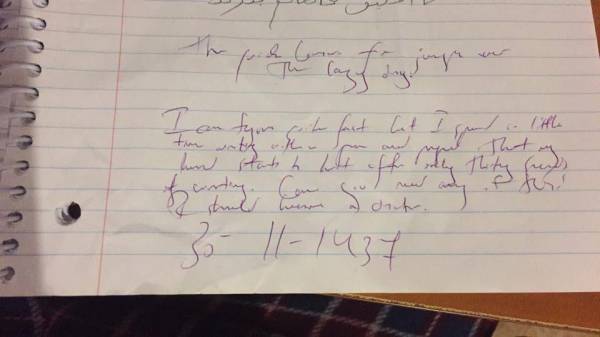 The quick brown fox jumps over
The lazy dogs.
I can type quite fast but I spend so little
time writing with a pen and paper that my
hand starts to hurt after only thirty seconds
of writing. Can you read any of this?
I should become a doctor.
30-11-1437